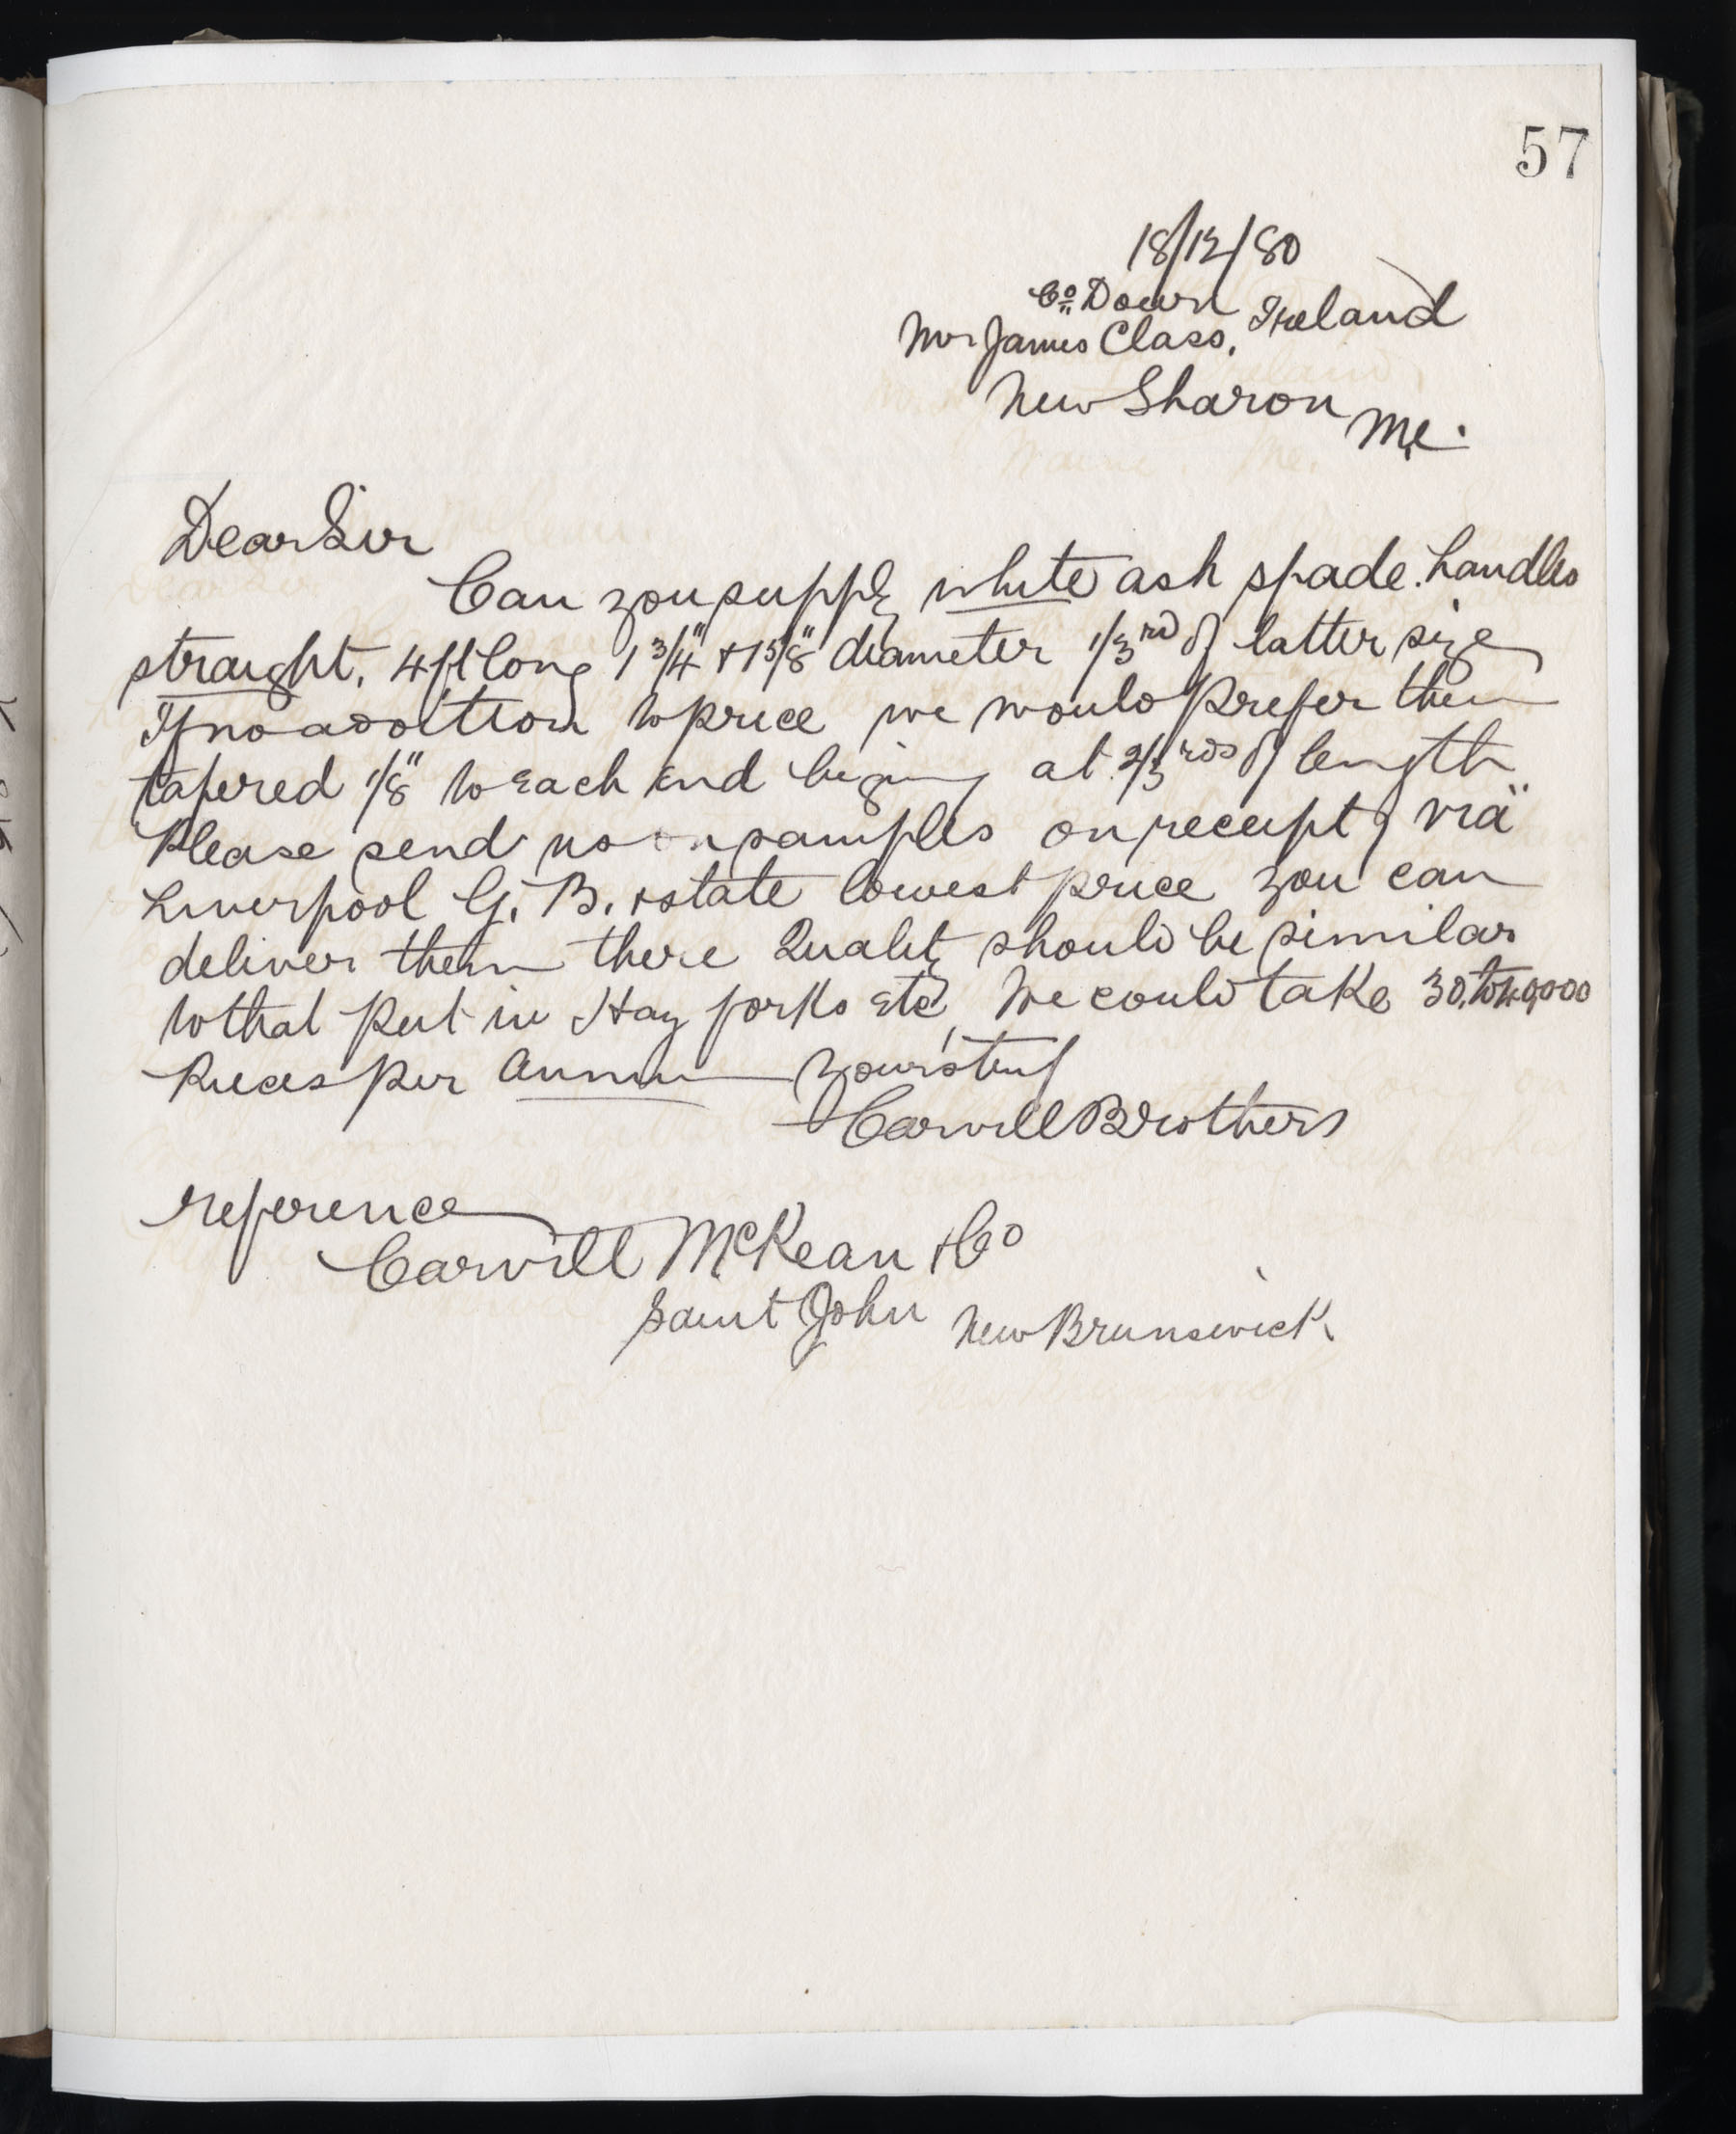 57
18/12/80
Co Down Ireland
Mr James Class,
New Sharon
Me.
Dear Sir
Can you supply white ash spade handles
straight, 4 ft long 1 3/4" & 1 5/8" diameter 1/3rd of latter size
If no addition to price we would prefer them
tapered 1/8" to each end begining at 2/3rds of length
Please send us on samples on receipt of via
Liverpool G. B. & state lowest price you can
deliver them there Quality should be similar
to that put in Hay forks etc, We could take 30, to 40,000
pieces per annum yours truly
Carvill Brothers
reference
Carvill McKean & Co
Saint John New Brunswick